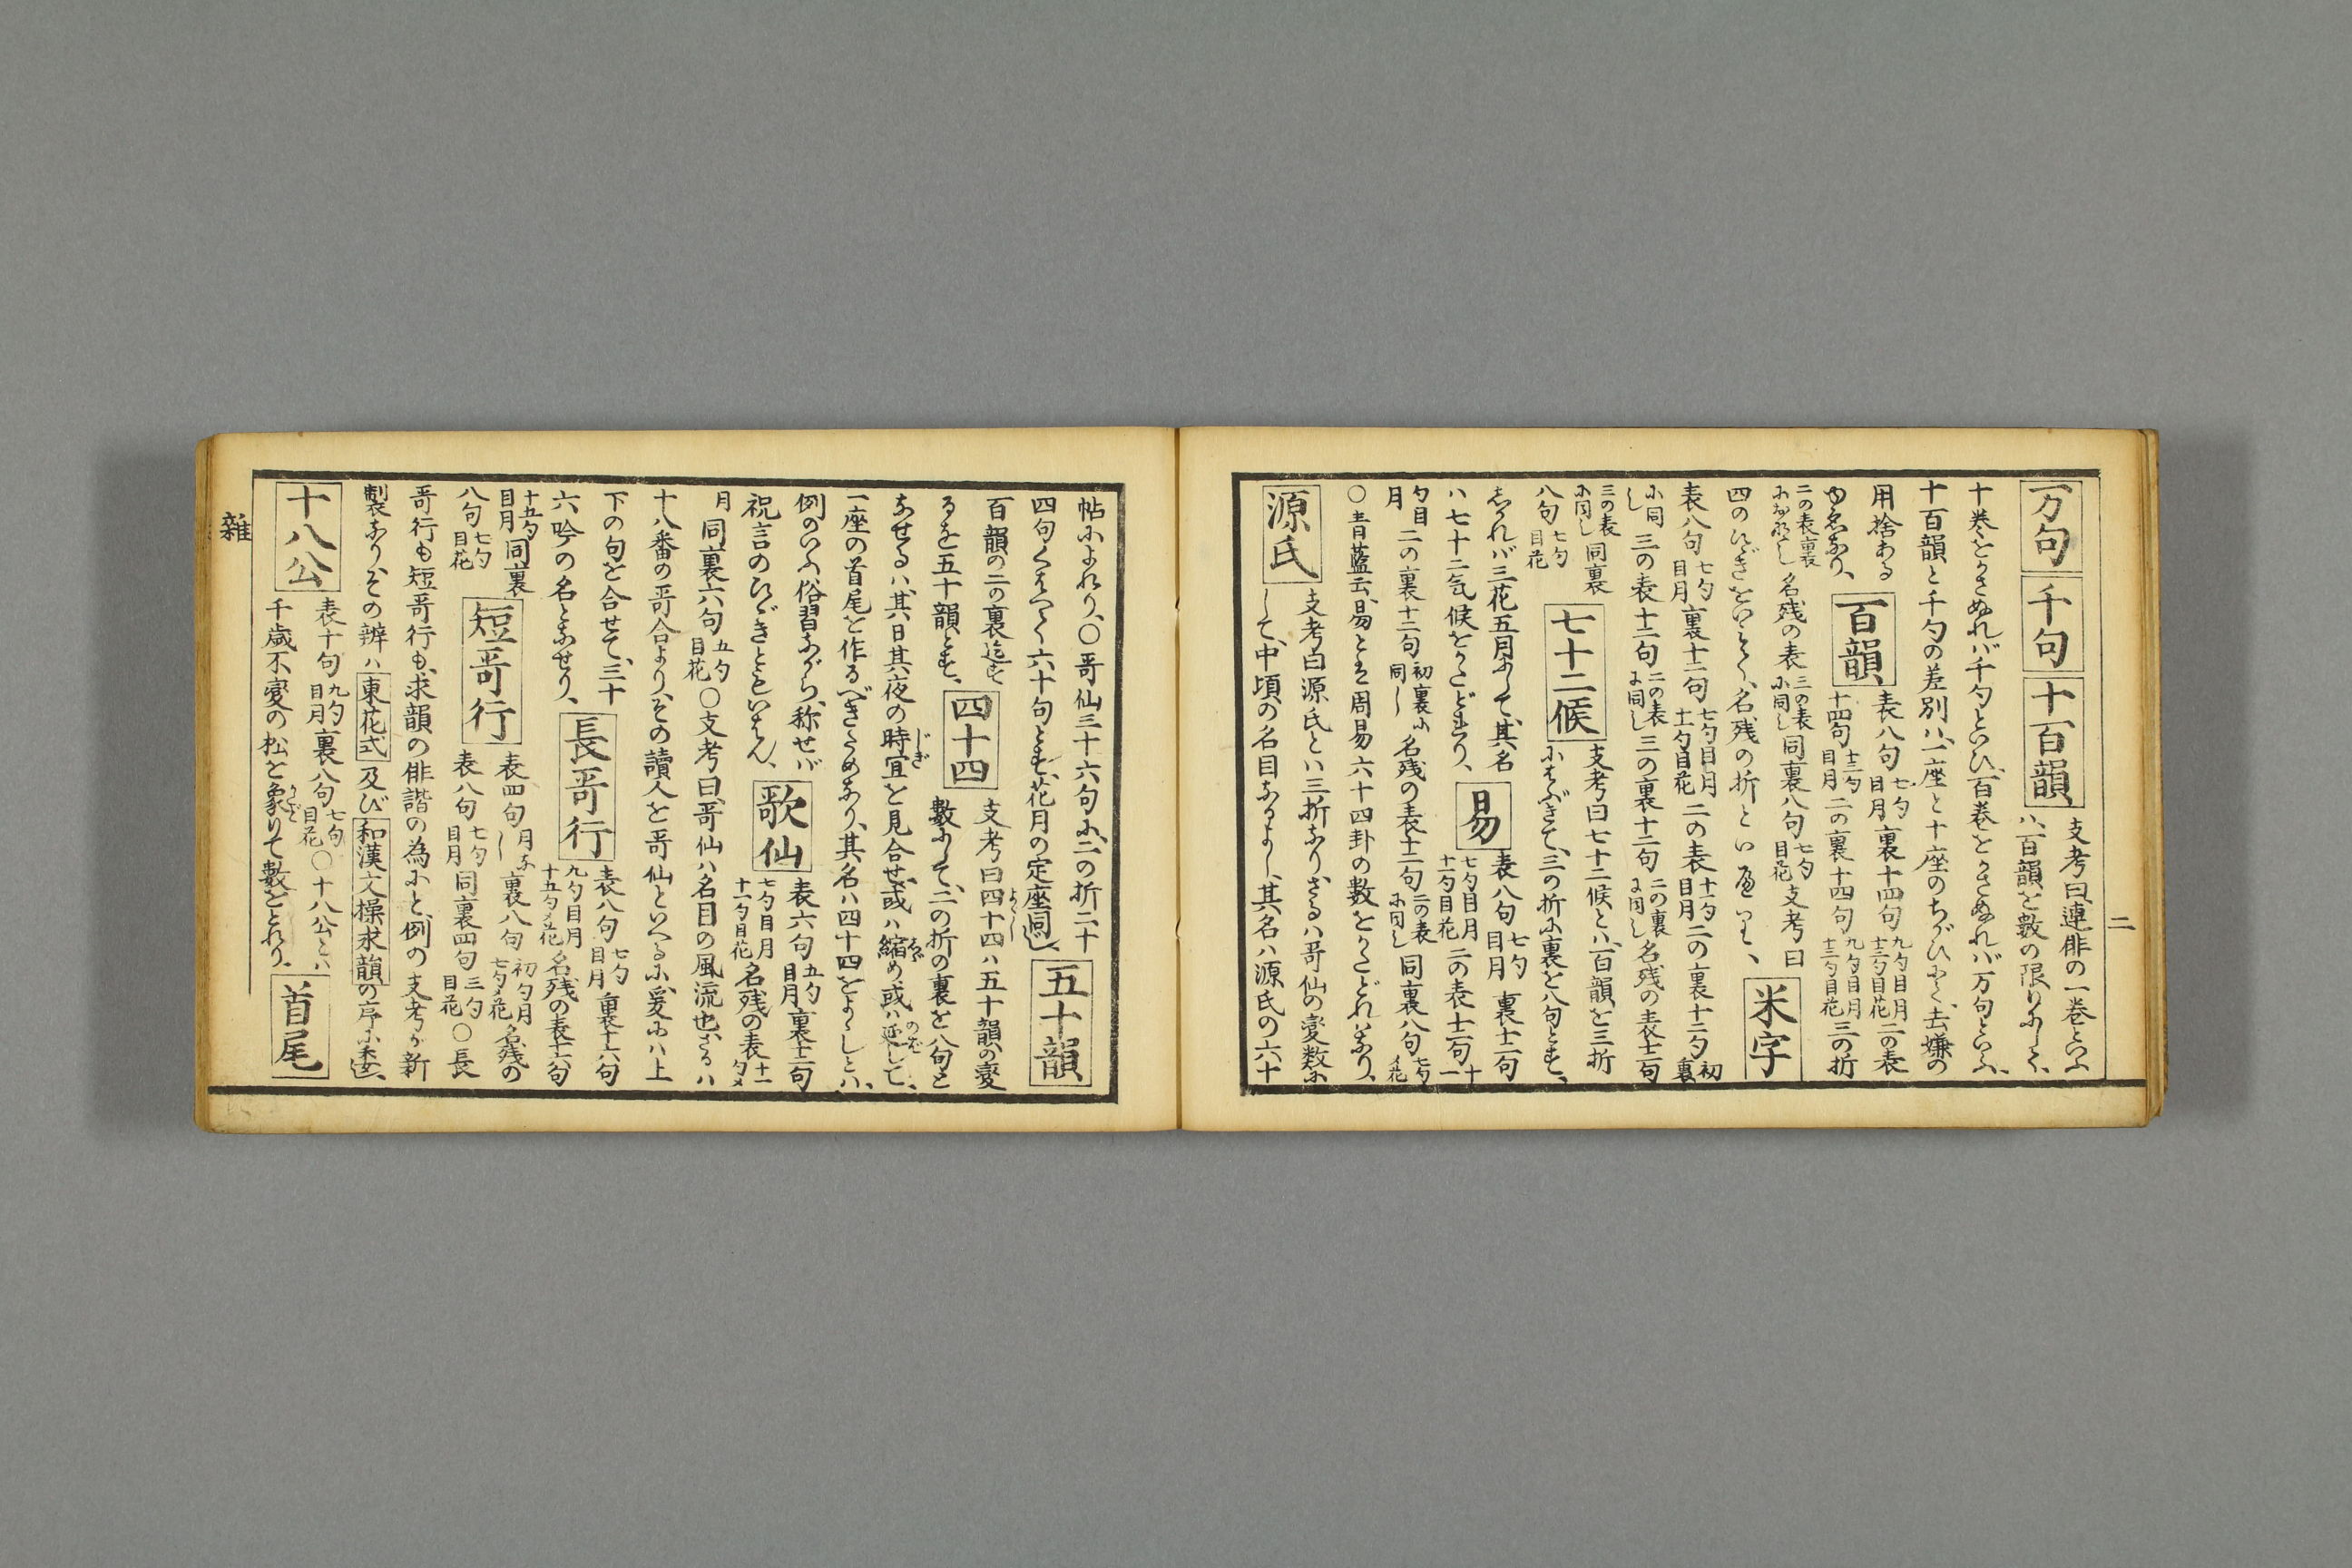 二
万句 千句 十百韻 支考曰連俳の一巻といふ
ハ百韻を數の限りにして、
十巻をかさぬれバ千句といひ、百巻をかさぬれバ万句といふ、
十百韻と千句の差別ハ、一座と十座のちがひにて、去嫌の
用捨ある
ゆゑなり、
百韻 表八句 七句目月 裏十四句 九句目月 十三句目花 二の表
十四句 十三句目月 二の裏十四句 九句目月 十三句目花 三の折
二の表裏におなじくし 名残の表 三の表に同じ 同裏八句 七句目花 支考曰
四のひゞきをいとひて、名残の折といへり、
米字
表八句 七句目月 裏十二句 七句目月 十一句目花 二の表 十一句目月 二の裏十二句 初裏
に同し 三の表十二句 二の表に同し 三の裏十二句 二の裏に同し 名残の表十二句
三の表に同し 同裏
八句 七句目花
七十二候 支考曰七十二候とハ、百韻を三折
にちゞきて、三の折に裏を八句とす、
しかれバ三花五月にして、其名
ハ七十二気候をかたどれり、
易 表八句 七句目月 裏十二句
七句目月 十一句目花 二の表十二句 十一
句目月 二の裏十二句 初裏に同し 名残の表十二句 二の表に同し 同裏八句 七句メ花
○青藍云、易とは周易六十四卦の数をかたどれバなり、
源氏 支考曰源氏とハ三折なり、さるハ哥仙の変数に
して、中頃の名目なるよし、其名ハ源氏の六十
帖によれり、○哥仙三十六句に、二の折二十
四句くはへて六十句とす、花月の定座同し、
五十韻
百韻の二の裏迄を
るを五十韻とす、
四十四 支考曰四十四ハ五十韻の変
數にして、二の折の裏を八句と
なせるハ、其日其夜の時宜を見合せ、或ハ縮め、或ハ延して、
一座の首尾を作るべきためなり、其名ハ四十四をよゝしとハ、
例のいふ俗習ながら、称せバ
祝言のひゞきともいはん、
歌仙 表六句 五句目月 裏十二句
七句目月 十一句目花 名残の表 十一句メ
月 同裏六句 五句目花 ○支考曰、哥仙ハ名目の風流也、さるハ
十八番の哥合より、その讀人を哥仙といへるに、爰にハ上
下の句を合せて、三十
六吟の名となせり、
長哥行 表八句 七句目月 裏十六句
九句目月 十五句メ花 名残の表十六句
十五句目月 同裏
八句 七句目花
短哥行 表四句 月なし 裏八句 初句月 七句メ花 名残の
表八句 七句目月 同裏四句 三句目花 ○長
哥行も短哥行も、求韻の俳諧の為にと、例の支考が新
製なり、その辨ハ東花式及び和漢文操求韻の序に委し、
十八公 表十句 九句目月 裏八句 七句目花 ○十八公とハ
千歳不變の松を象りて數をとれり、
首尾
雜